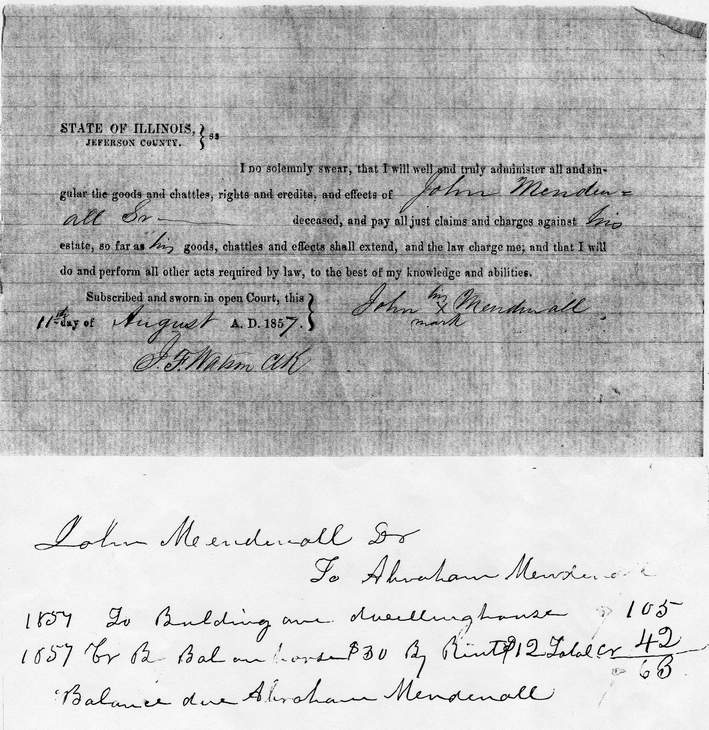 STATE OF ILLINOIS, } ss
JEFERSON COUNTY.
I no solemnly swear, that I will well and truly administer all and sin-
gular the goods and chattles, rights and credits, and effects of John Menden=
all Sr — deceased, and pay all just claims and charges against his
estate, so far as his goods, chattles and effects shall extend, and the law charge me; and that I will
do and perform all other acts required by law, to the best of my knowledge and abilities.
Subscribed and sworn in open Court, this }
11th day of August A. D. 1857.
John his x mark Mendenall
J. F. Watson Clk
John Mendenall Dr
To Abraham Mendenall
1857 To Building one dwellinghouse 105
1857 Cr B Bal on horse $30 By Rent $12 Total cr 42
63
Balance due Abraham Mendenall